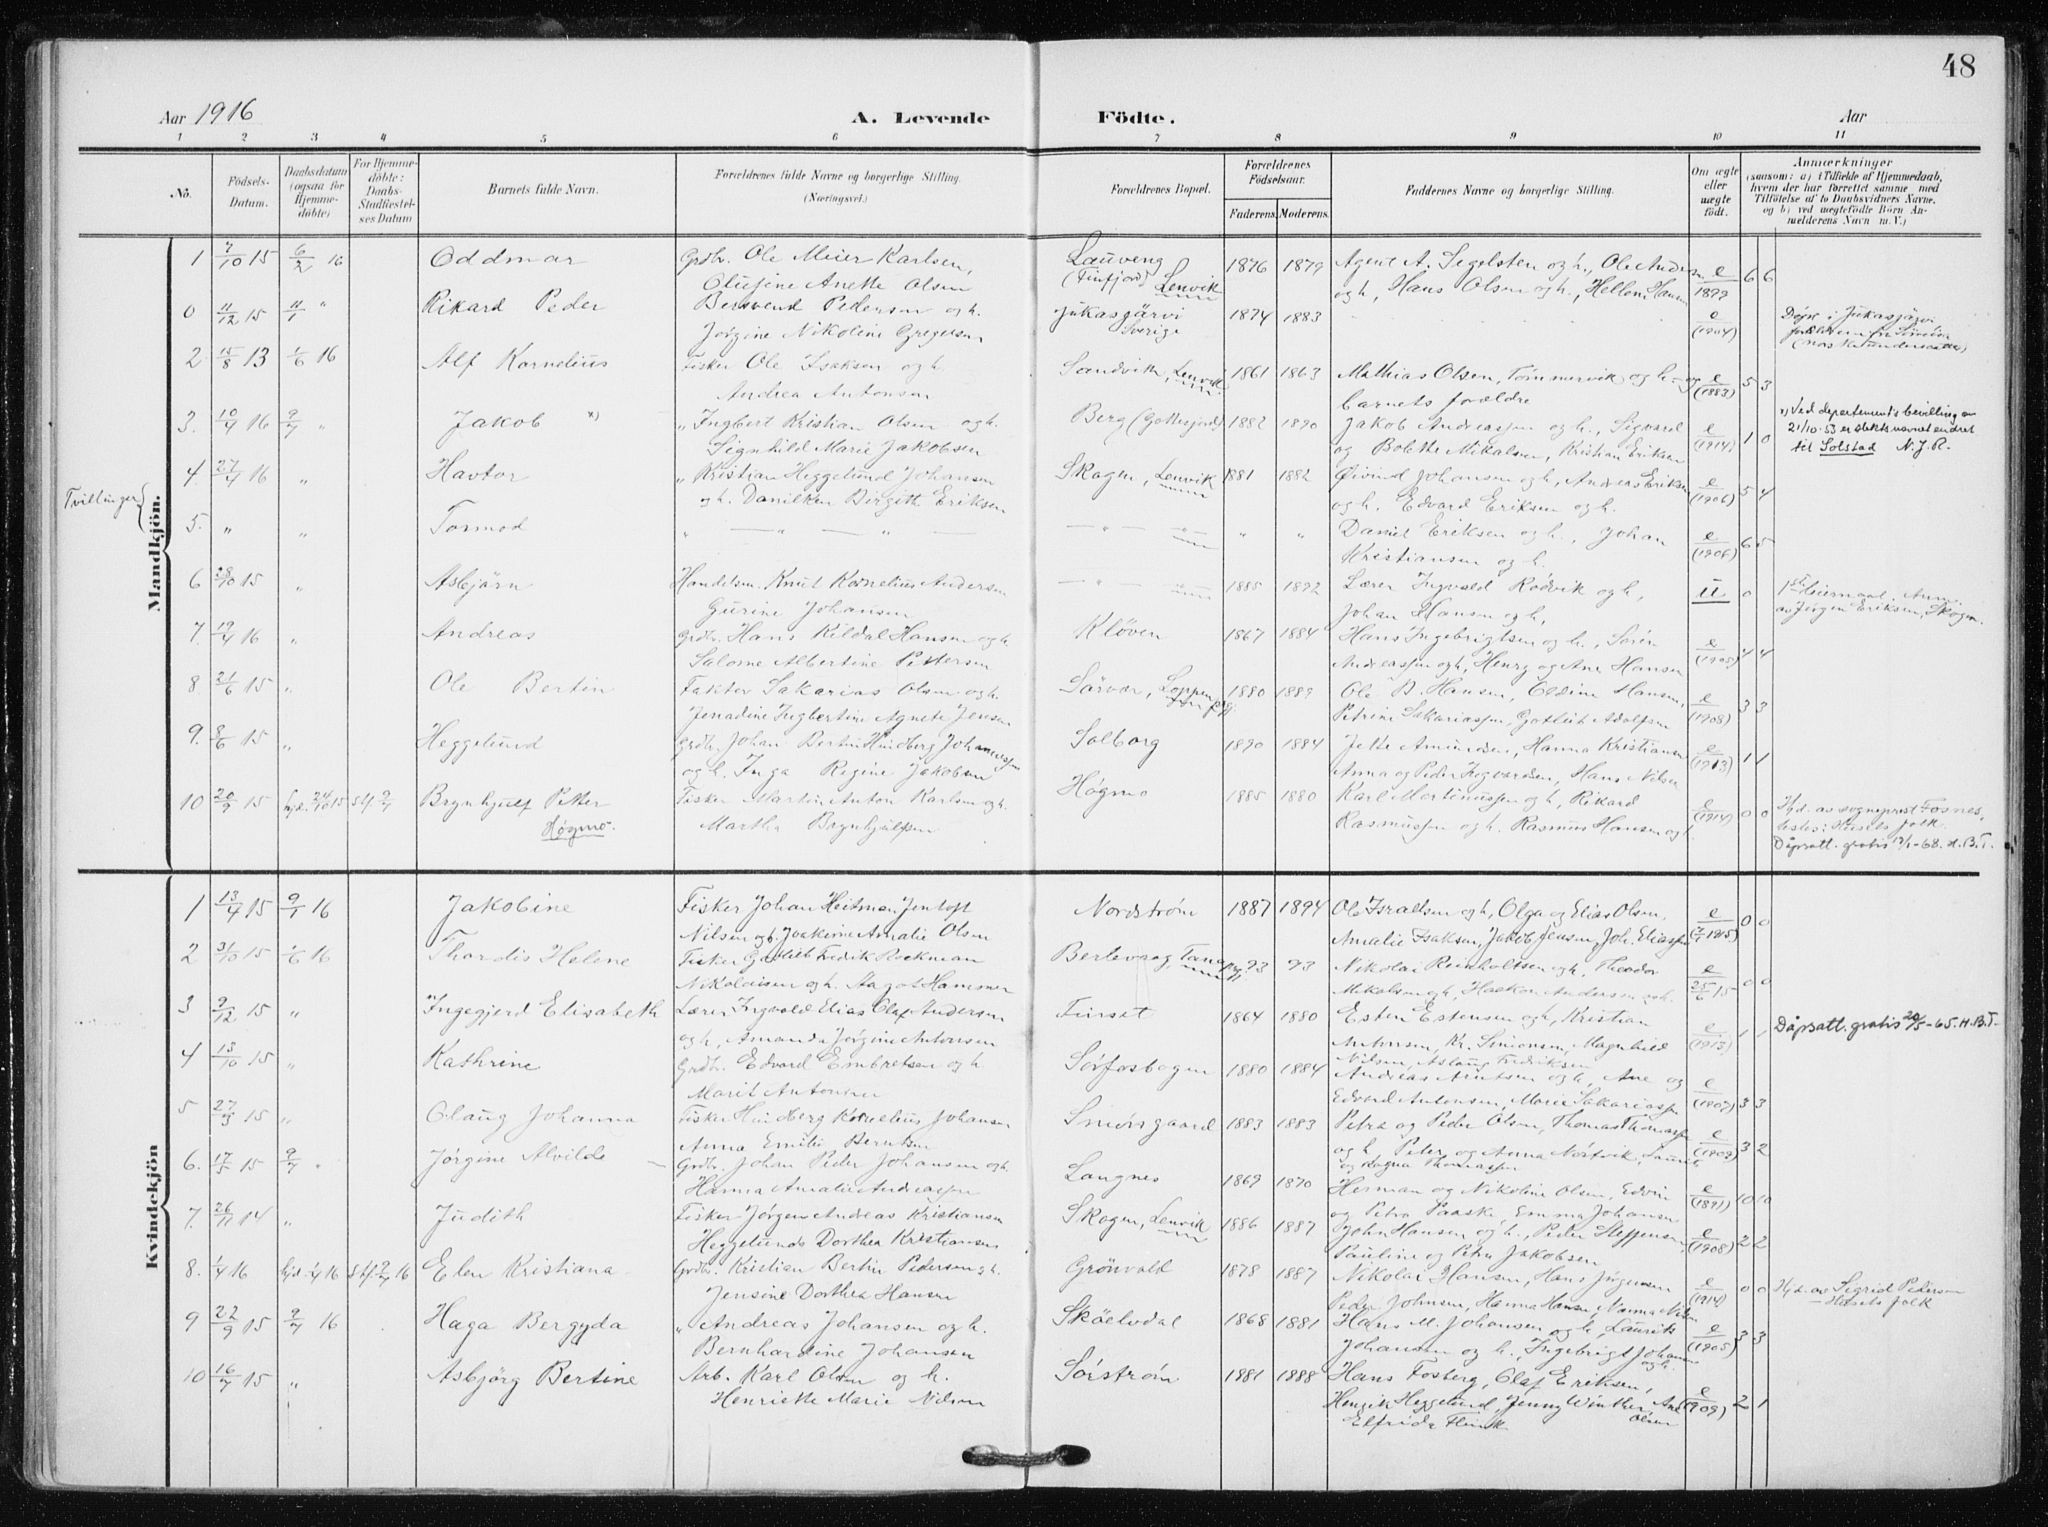 48
Aar 1916 A. Levende Födte. Aar
1 2 3 4 5 6 7 8 9 10 11
No. Födsels-Datum. Daabsdatum (ogsaa for Hjemme-döbte) For Hjemme-döbte: Daabs-Stadfæstel-ses Datum Barnets fulde Navn. Forældrenes fulde Navne og borgerlige Stilling. (Næringsvei.) Forældrenes Bopæl. Forældrenes Födselsaar. Faderens. Moderens. Faddernes Navne og borgerlige Stilling. Om ægte eller uægte födt. Anmærkninger (saasom: a) i Tilfælde af Hjemmedaab, hvem der har forrettet samme med Tilföielse af to Daabsvidners Navne, og b) ved uægtefödte Börn An-melderens Navn m.V.)
Mandkjön.
1 7/10 15 6/2 16 Oddmar Grdbr. Ole Meier Karlsen, Lauveng 1876 1879 Agent A. Segelsten og h., Ole Andersen e 6 6
Olufine Anette Olsen (Finfjord) Lenvik og h., Hans Olsen og h., Hellem Hansen 1899
0 11/12 15 11/1 " Rikard Peder Bersvend Pedersen og h. Jukasjärvi 1874 1883 e (1904) Døpt i Jukasjärvi
Jørgine Nikoline Gregersen Sverige
2 15/8 13 1/6 16 Alf Kornelius Fisker Ole Isaksen og h. Sandvik, Lenvik 1861 1863 Mathias Olsen, Tømmervik og h. og e 5 3
Andrea Antonsen barnets forældre (1883)
3. 10/4 16 9/7 " Jakob x) " Ingbert Kristian Olsen og h. Berg (Gottesjord) 1882 1890 Jakob Andreassen og h., Sigvard e 1 0 x) Ved departements bevilling av
21/10-53 er slektsnavnet endret
Signhild Marie Jakobsen og Bolette Mikalsen, Kristian Eriksen (1914) til Solstad N.J.R.
Tvillinger
4. 27/4 16 " Havtor " Kristian Heggelund Johansen Skogen, Lenvik 1881 1882 Øivind Johansen og h., Andreas Eriksen e 5 4
og h. Danilken Birgith Eriksen og h. Edvard Eriksen og h. (1906)
5. " " Tormod " — " — " — — " — " " " Daniel Eriksen og h., Johan e 6 5
Kristiansen og h. (1906)
6 28/10 15 " Asbjörn Handelsm. Knut Kornelius Andersen — " — 1885 1892 Lærer Ingvald Rödvik og h, u 0 1ste leiermaal. Anm.
Gurine Johansen Johan Hansen og h, av Jørgen Eriksen, Skogen.
7. 19/4 16 " Andreas Grdbr. Hans Kildal Hansen og h. Kløven 1867 1884 Hans Ingebrigtsen og h., Sørén e 4 4
Salome Albertine Pettersen Andreassen og h., Henry og Ane Hansen (1905)
8. 21/6 15 " Ole Bertin Faktor Sakarias Olsen og h. Sörvær, Loppen 1880 1889 Ole B. Hansen, Oldine Hansen, e 3 3
Jenadine Ingbertine Agnete Jensen Petrine Sakariassen, Gotlieb Adolfsen (1908)
9. 8/6 15 " Heggelund Grdbr. Johan Bertin Hindberg Johannessen Solborg 1890 1884 Jette Amundsen, Hanna Kristiansen e 1 1
og h. Inga Regine Jakobsen Anna og Peder Ingvardsen, Hans Nilsen (1913)
10 20/9 15 hjd. 24/10 15 stf. 9/7 Brynhjulf Petter Fisker Martin Anton Karlsen og h. Høgmo 1885 1880 Karl Mortinussen og h, Rikard e (1914) 0 0 Hjd. av sogneprest Fosnes,
Høgmo. Martha Brynhjulfsen Rasmussen og h. Rasmus Hansen og h. testes: Husets folk
Dåpsatt. gratis 19/1-68. H.B.T.
Kvindekjön
1 13/4 15 9/1 16 Jakobine Fisker Johan Heitman Jentoft Nordstrøm 1887 1894 Ole Israelsen og h, Olga og Elias Olsen, e 0 0
Nilsen og h. Joakime Amalie Olsen Amalie Isaksen, Jakob Jensen, Joh. Eliassen (7/1 1915)
2 31/10 15 1/6 16 Thordis Helene Fisker Gotlieb Fredik Rockman Berlevaag, Tana 93 93 Nikolai Reinholtsen og h. Theodor e 0 0
Nikolaisen og h. Aagot Hammer Mikalsen og h, Haakon Andersen og h. 25/6 15
3 9/12 15 " Ingegjerd Elisabeth Lærer Ingvald Elias Olaf Andersen Finset 1864 1880 Esten Estensen og h, Kristian e 1 1 Dåpsatt. gratis 20/5-65. H.B.T.
og h, Amanda Jørgine Antonsen Antonsen, Kr. Simonsen, Magnhild (1913)
4 13/10 15 " Kathrine Grdbr. Edvard Embretsen og h Sörfosbogen 1880 1884 Nilsen, Aslaug Fredriksen
Andreas Arntsen og h, Ane og e 3 3
Marit Antonsen Edvard Antonsen, Marie Sakariassen (1907)
5 27/3 15 " Olaug Johanna Fisker Hindberg Kornelius Johansen Smörsgaard 1883 1883 Petra og Peder Olsen, Thomas Thomassen e 3 2
Anna Emilie Berntsen og h Peter og Anna Nörtvik, Laurits (1909)
6. 17/5 15 9/7 " Jørgine Alvilde Grdbr. Johan Peder Johansen og h. Langnes 1869 1870 og Ragna Thomassen
Herman og Nikoline Olsen, Edvin e 10 10
Hanna Amalie Andreassen og Petra Paaske, Emma Johansen (1891)
7. 26/11 14 " Judith Fisker Jørgen Andreas Kristiansen Skogen, Lenvik 1886 1887 John Hansen og h, Peder Steffensen, e 2 2
Heggelunds Dorthea Kristiansen Pauline og Petra Jakobsen (1908)
8. 1/4 16 hjd. 1/4 16 stf 9/7 16 Elen Kristiana Grdbr. Kristian Bertin Pedersen og h. Grönvold 1878 1887 Nikolai Hansen, Hans Jørgensen e 0 0 Hjd. av Sigrid Pedersen
Jensine Dorthea Hansen Peder Johnsen, Hanna Hansen, Nanna Nilsen (1914) Husets folk
9 22/9 15 9/7 16 Haga Bergyda " Andreas Johansen og h. Sköelvdal 1868 1881 Hans M. Johansen og h, Laurits e 3 3
Bernhardine Johansen Johansen og h., Ingebrigt Johansen og h. (1905)
10 16/7 15 " Asbjörg Bertine Arb. Karl Olsen og h. Sörströn 1881 1888 Hans Fosberg, Olaf Eriksen, e 2 1
Henriette Marie Nilsen Henrik Heggelund, Jenny Winther, And. Olsen (1909)
Elfrida Flink